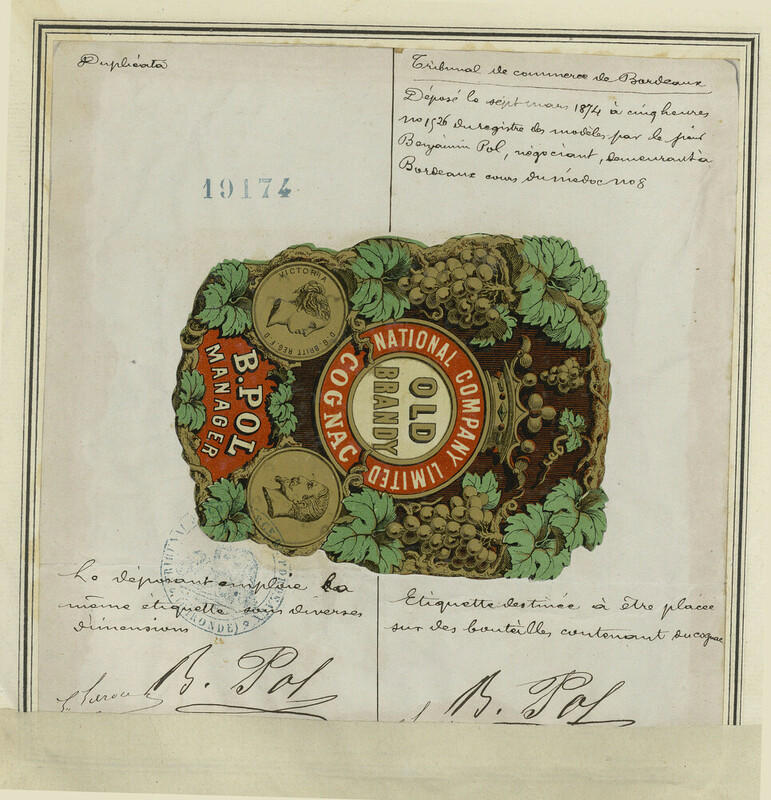 Duplicata
Tribunal de commerce de Bordeaux
Déposé le sept mars 1874 à cinq heures
no 1526 du registre des modèles par le sieur
Benjamin Pol, négociant, demeurant à
Bordeaux cours du médoc no 8
19174
VICTORIA
D.G. BRITT REG. F.D.
B. POL
MANAGER
NATIONAL COMPANY LIMITED
COGNAC
OLD
BRANDY
(GIRONDE)
Le déposant emploie la
même étiquette sous diverses
dimensions
B. Pol
Etiquette destinée à être placée
sur des bouteilles contenant du cognac
B. Pol